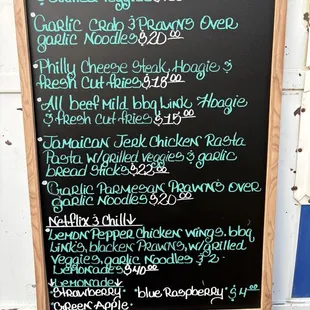 Garlic Crab & Prawns Over
garlic Noodles $20.00
Philly Cheese Steak Hoagie &
fresh Cut fries $18.00
All beef Mild bbq Link Hoagie
& fresh Cut fries $15.00
Jamaican Jerk Chicken Rasta
Pasta w/grilled veggies & garlic
bread Sticks $22.00
Garlic Parmesan Prawns Over
garlic Noodles $20.00
Netflix & Chill ↓
Lemon Pepper Chicken wings, bbq
Links, blacken Prawns, w/grilled
Veggies, garlic Noodles & 2
Lemonades $40.00
↓ Lemonade ↓
Strawberry • "blue Raspberry" $4.00
Green Apple •